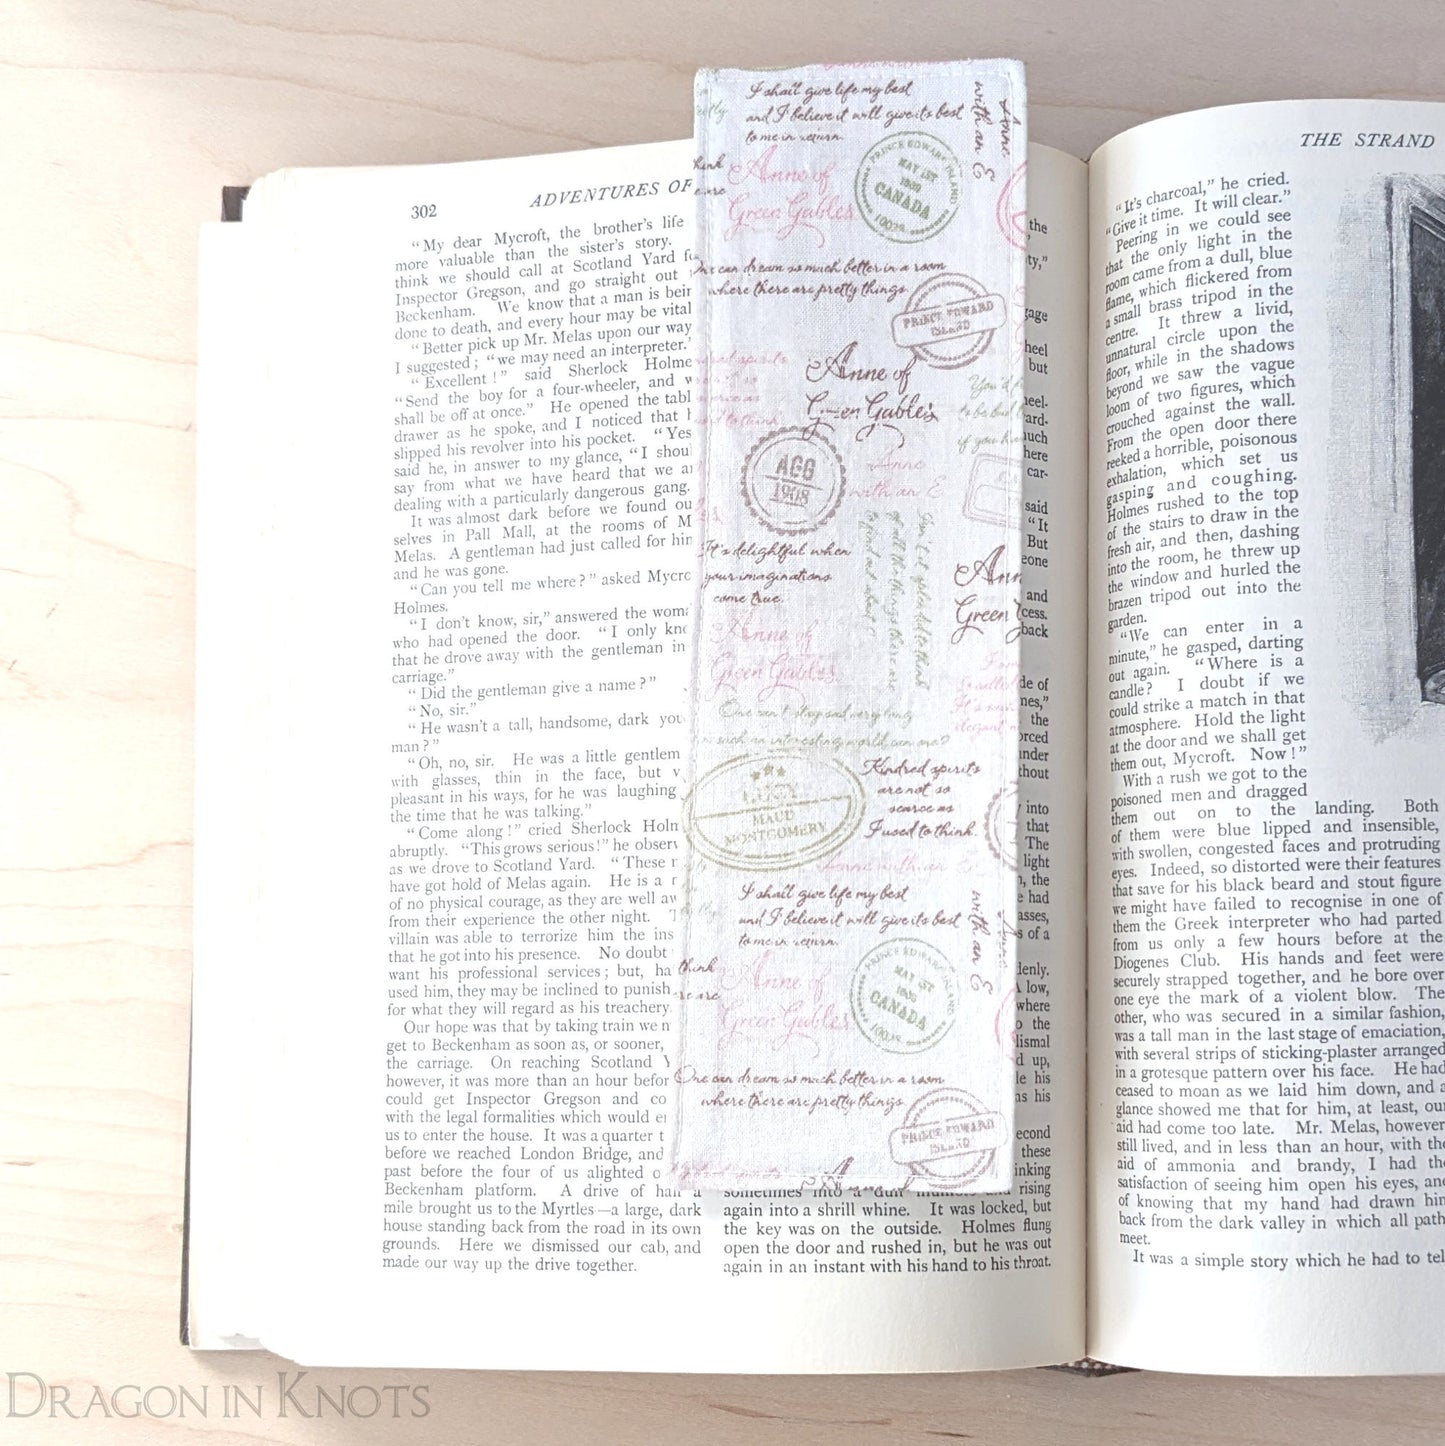 302
ADVENTURES OF
“My dear Mycroft, the brother’s life
more valuable than the sister’s story.
think we should call at Scotland Yard
Inspector Gregson, and go straight out
Beckenham. We know that a man is
done to death, and every hour may be vital
“Better pick up Mr. Melas upon our way
I suggested; “we may need an interpreter.”
“Excellent!” said Sherlock
“Send the boy for a four-wheeler, and
shall be off at once.” He opened the
drawer as he spoke, and I noticed that
slipped his revolver into his pocket. “Yes
said he, in answer to my glance, “I
say from what we have heard that we
dealing with a particularly dangerous gang.
It was almost dark before we found
selves in Pall Mall, at the rooms of
Melas. A gentleman had just called for him
and he was gone.
“Can you tell me where?” asked
Holmes.
“I don’t know, sir,” answered the
who had opened the door. “I only
that he drove away with the gentleman in
carriage.”
“Did the gentleman give a name?”
“No, sir.”
“He wasn’t a tall, handsome, dark
man?”
“Oh, no, sir. He was a little
with glasses, thin in the face, but
pleasant in his ways, for he was laughing
the time that he was talking.”
“Come along!” cried Sherlock
abruptly. “This grows serious!” he
as we drove to Scotland Yard. “These
have got hold of Melas again. He is a
of no physical courage, as they are well
from their experience the other night.
villain was able to terrorize him the
that he got into his presence. No doubt
want his professional services; but,
used him, they may be inclined to punish
for what they will regard as his treachery.
Our hope was that by taking train we
get to Beckenham as soon as, or sooner,
the carriage. On reaching Scotland
however, it was more than an hour
could get Inspector Gregson and
with the legal formalities which would
us to enter the house. It was a quarter
before we reached London Bridge, and
past before the four of us alighted
Beckenham platform. A drive of half a
mile brought us to the Myrtles—a large, dark
house standing back from the road in its own
grounds. Here we dismissed our cab, and
made our way up the drive together.
I shall give life my best
and I believe it will give its best
to me in return.
Anne
with an E
think
Anne of
Green Gables
PRINCE EDWARD ISLAND
MAY 1ST
1908
CANADA
One can dream so much better in a room
where there are pretty things
PRINCE EDWARD
ISLAND
Anne of
Green Gables
AGG
1908
Anne
with an E
It's delightful when
your imaginations
come true.
Isn't it splendid to think
of all the things there are
to find out about
Anne of
Green Gables
One can't stay sad very long
in such an interesting world, can one?
LUCY
MAUD
MONTGOMERY
Kindred spirits
are not so
scarce as
I used to think.
Anne with an E
I shall give life my best
and I believe it will give its best
to me in return.
with an E
think
Anne of
Green Gables
PRINCE EDWARD ISLAND
MAY 1ST
1908
CANADA
One can dream so much better in a room
where there are pretty things
PRINCE EDWARD
ISLAND
again into a shrill whine. It was locked, but
the key was on the outside. Holmes flung
open the door and rushed in, but he was out
again in an instant with his hand to his throat.
THE STRAND
“It’s charcoal,” he cried.
“Give it time. It will clear.”
Peering in we could see
that the only light in the
room came from a dull, blue
flame, which flickered from
a small brass tripod in the
centre. It threw a livid,
unnatural circle upon the
floor, while in the shadows
beyond we saw the vague
loom of two figures, which
crouched against the wall.
From the open door there
reeked a horrible, poisonous
exhalation, which set us
gasping and coughing.
Holmes rushed to the top
of the stairs to draw in the
fresh air, and then, dashing
into the room, he threw up
the window and hurled the
brazen tripod out into the
garden.
“We can enter in a
minute,” he gasped, darting
out again. “Where is a
candle? I doubt if we
could strike a match in that
atmosphere. Hold the light
at the door and we shall get
them out, Mycroft. Now!”
With a rush we got to the
poisoned men and dragged
them out on to the landing. Both
of them were blue lipped and insensible,
with swollen, congested faces and protruding
eyes. Indeed, so distorted were their features
that save for his black beard and stout figure
we might have failed to recognise in one of
them the Greek interpreter who had parted
from us only a few hours before at the
Diogenes Club. His hands and feet were
securely strapped together, and he bore over
one eye the mark of a violent blow. The
other, who was secured in a similar fashion,
was a tall man in the last stage of emaciation,
with several strips of sticking-plaster arranged
in a grotesque pattern over his face. He had
ceased to moan as we laid him down, and a
glance showed me that for him, at least, our
aid had come too late. Mr. Melas, however
still lived, and in less than an hour, with the
aid of ammonia and brandy, I had the
satisfaction of seeing him open his eyes, and
of knowing that my hand had drawn him
back from the dark valley in which all path
meet.
It was a simple story which he had to tel
DRAGON IN KNOTS